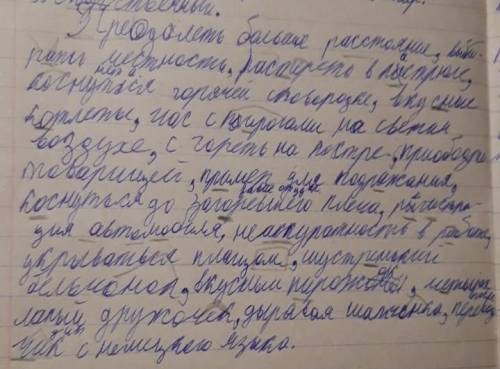 ственный.
Преодолеть большие расстояния, выби-
рать местность, растереть в костре,
коснуться горячей сковородки, вкусные
котлеты, нос с пирогами на свежем
воздухе, сгореть на костре, приободри
товарищей, пример для подражания,
коснуться до загоревшего плеча, регистра-
ция автомобиля, неаккуратность в работе,
укрываться плащом, шустренький
бельчонок, вкусный пирожок,
лый дружочек, дырявая шапчонка, перевод
чик с немецкого языка.